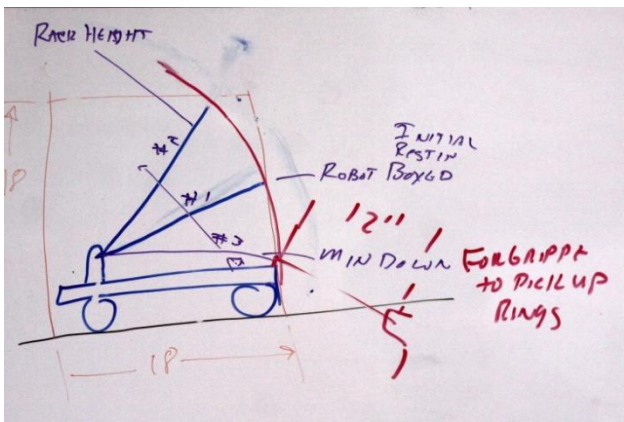 RACK HEIGHT
INITIAL
RESTIN
ROBOT BOXED
#1
#3
12"
MIN DOWN
FOR GRIPPE
TO PICK UP
RINGS
18
18